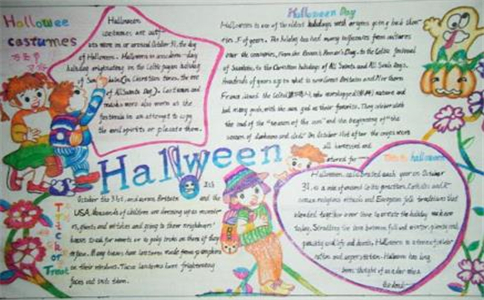 Hallowee
costumes
万圣节
Halloween
costumes are outf
its worn on or around October 31, the day
of Halloween. Halloween is a modern-day
holiday originating in the Celtic pagan holiday
of Samhain (in Christian times, the eve
of All Saints Day).
masks were also worn at the
festivals in an attempt to
the evil spirits or placate them.
Halloween Day
Halloween is one of the oldest holidays with origins going back thou
sands of years. The holiday has had many influences from cultures
over the centuries. From the Roman's Pomona's Day, to the Celtic festival
of Samhain, to the Christian holidays of All Saints and All Souls Days.
Hundreds of years ago in what is now Great Britain and Northern
France, lived the Celts. The Celts worshipped nature and
had many gods, with the sun god as their favorite. They celebrated
the end of the "season of the sun" and the beginning of "the
season of darkness and cold". On October 31st after the crops were
all harvested and
stored for
Halloween
This is halloween
October the 31st, and across Britain and the
USA, thousands of children are dressing up as monster
s, ghosts and witches and going to their neighbours'
houses to ask for sweets or to play tricks on them if they
refuse. Many homes have lanterns made from pumpkins
in their windows. These lanterns have frightening
faces cut into them.
Trick or
Treat
Halloween, celebrated each year on October
31, is a mix of ancient Celtic practices, Catholic and R
oman religious rituals and European folk traditions that
blended together over time to create the holiday we know
today. Straddling the line between fall and winter, plenty and
paucity and life and death, Halloween is a time of celeb
ration and superstition. Halloween has long
been thought of as a day when
the dead